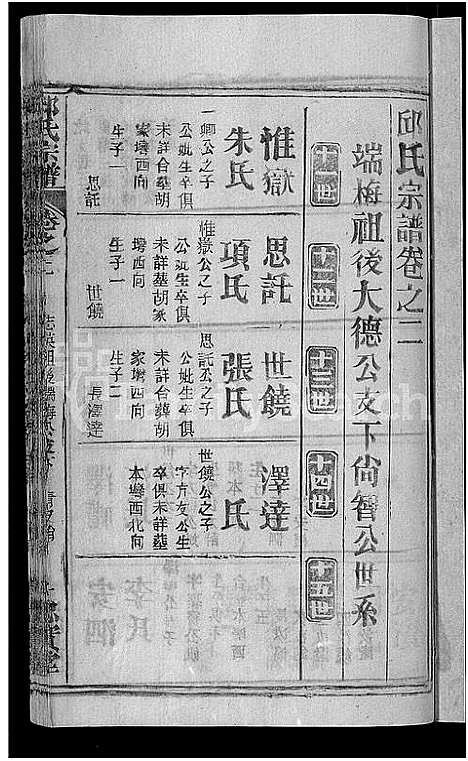 邱氏宗譜卷之二
端梅祖後大德公支下尙智公世系
十一世
十二世
十三世
十四世
十五世
惟嶽
朱氏
一卿公之子
公妣生卒俱
未詳合墓胡
家塝西向
生子一
思託
思託
項氏
惟嶽公之子
公妣生卒俱
未詳墓胡家
塝西向
生子一
世饒
世饒
張氏
思託公之子
公妣生卒俱
未詳合葬胡
家塝西向
生子二
長澤達
澤達
氏
世饒公之子
字方友公生
卒俱未詳墓
本塝西北向
邱氏宗譜
卷之二